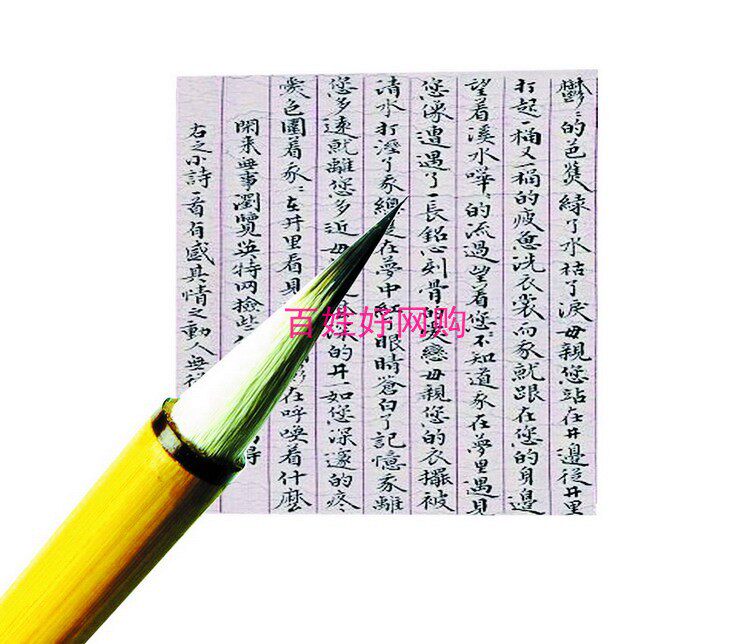 鬱〻的芭蕉綠了水枯了淚母親您站在井邊從井里
打起一桶又一桶的疲惫洗衣裳而家就跟在您的身邊
望着溪水嘩〻的流過望着您不知道家在夢里遇見
您像遭遇了一長銘心刻骨的失戀母親您的衣擺被
清水打溼了家總是在夢中紅了眼睛蒼白了記憶家離
您多遠就離您多近母 的井一如您深邃的疼
愛包圍着家〻在井里看見 在呼喚着什麽
閑來無事瀏覽英特网撿些 得
右之小詩一首有感其情之動人無
百姓好网购